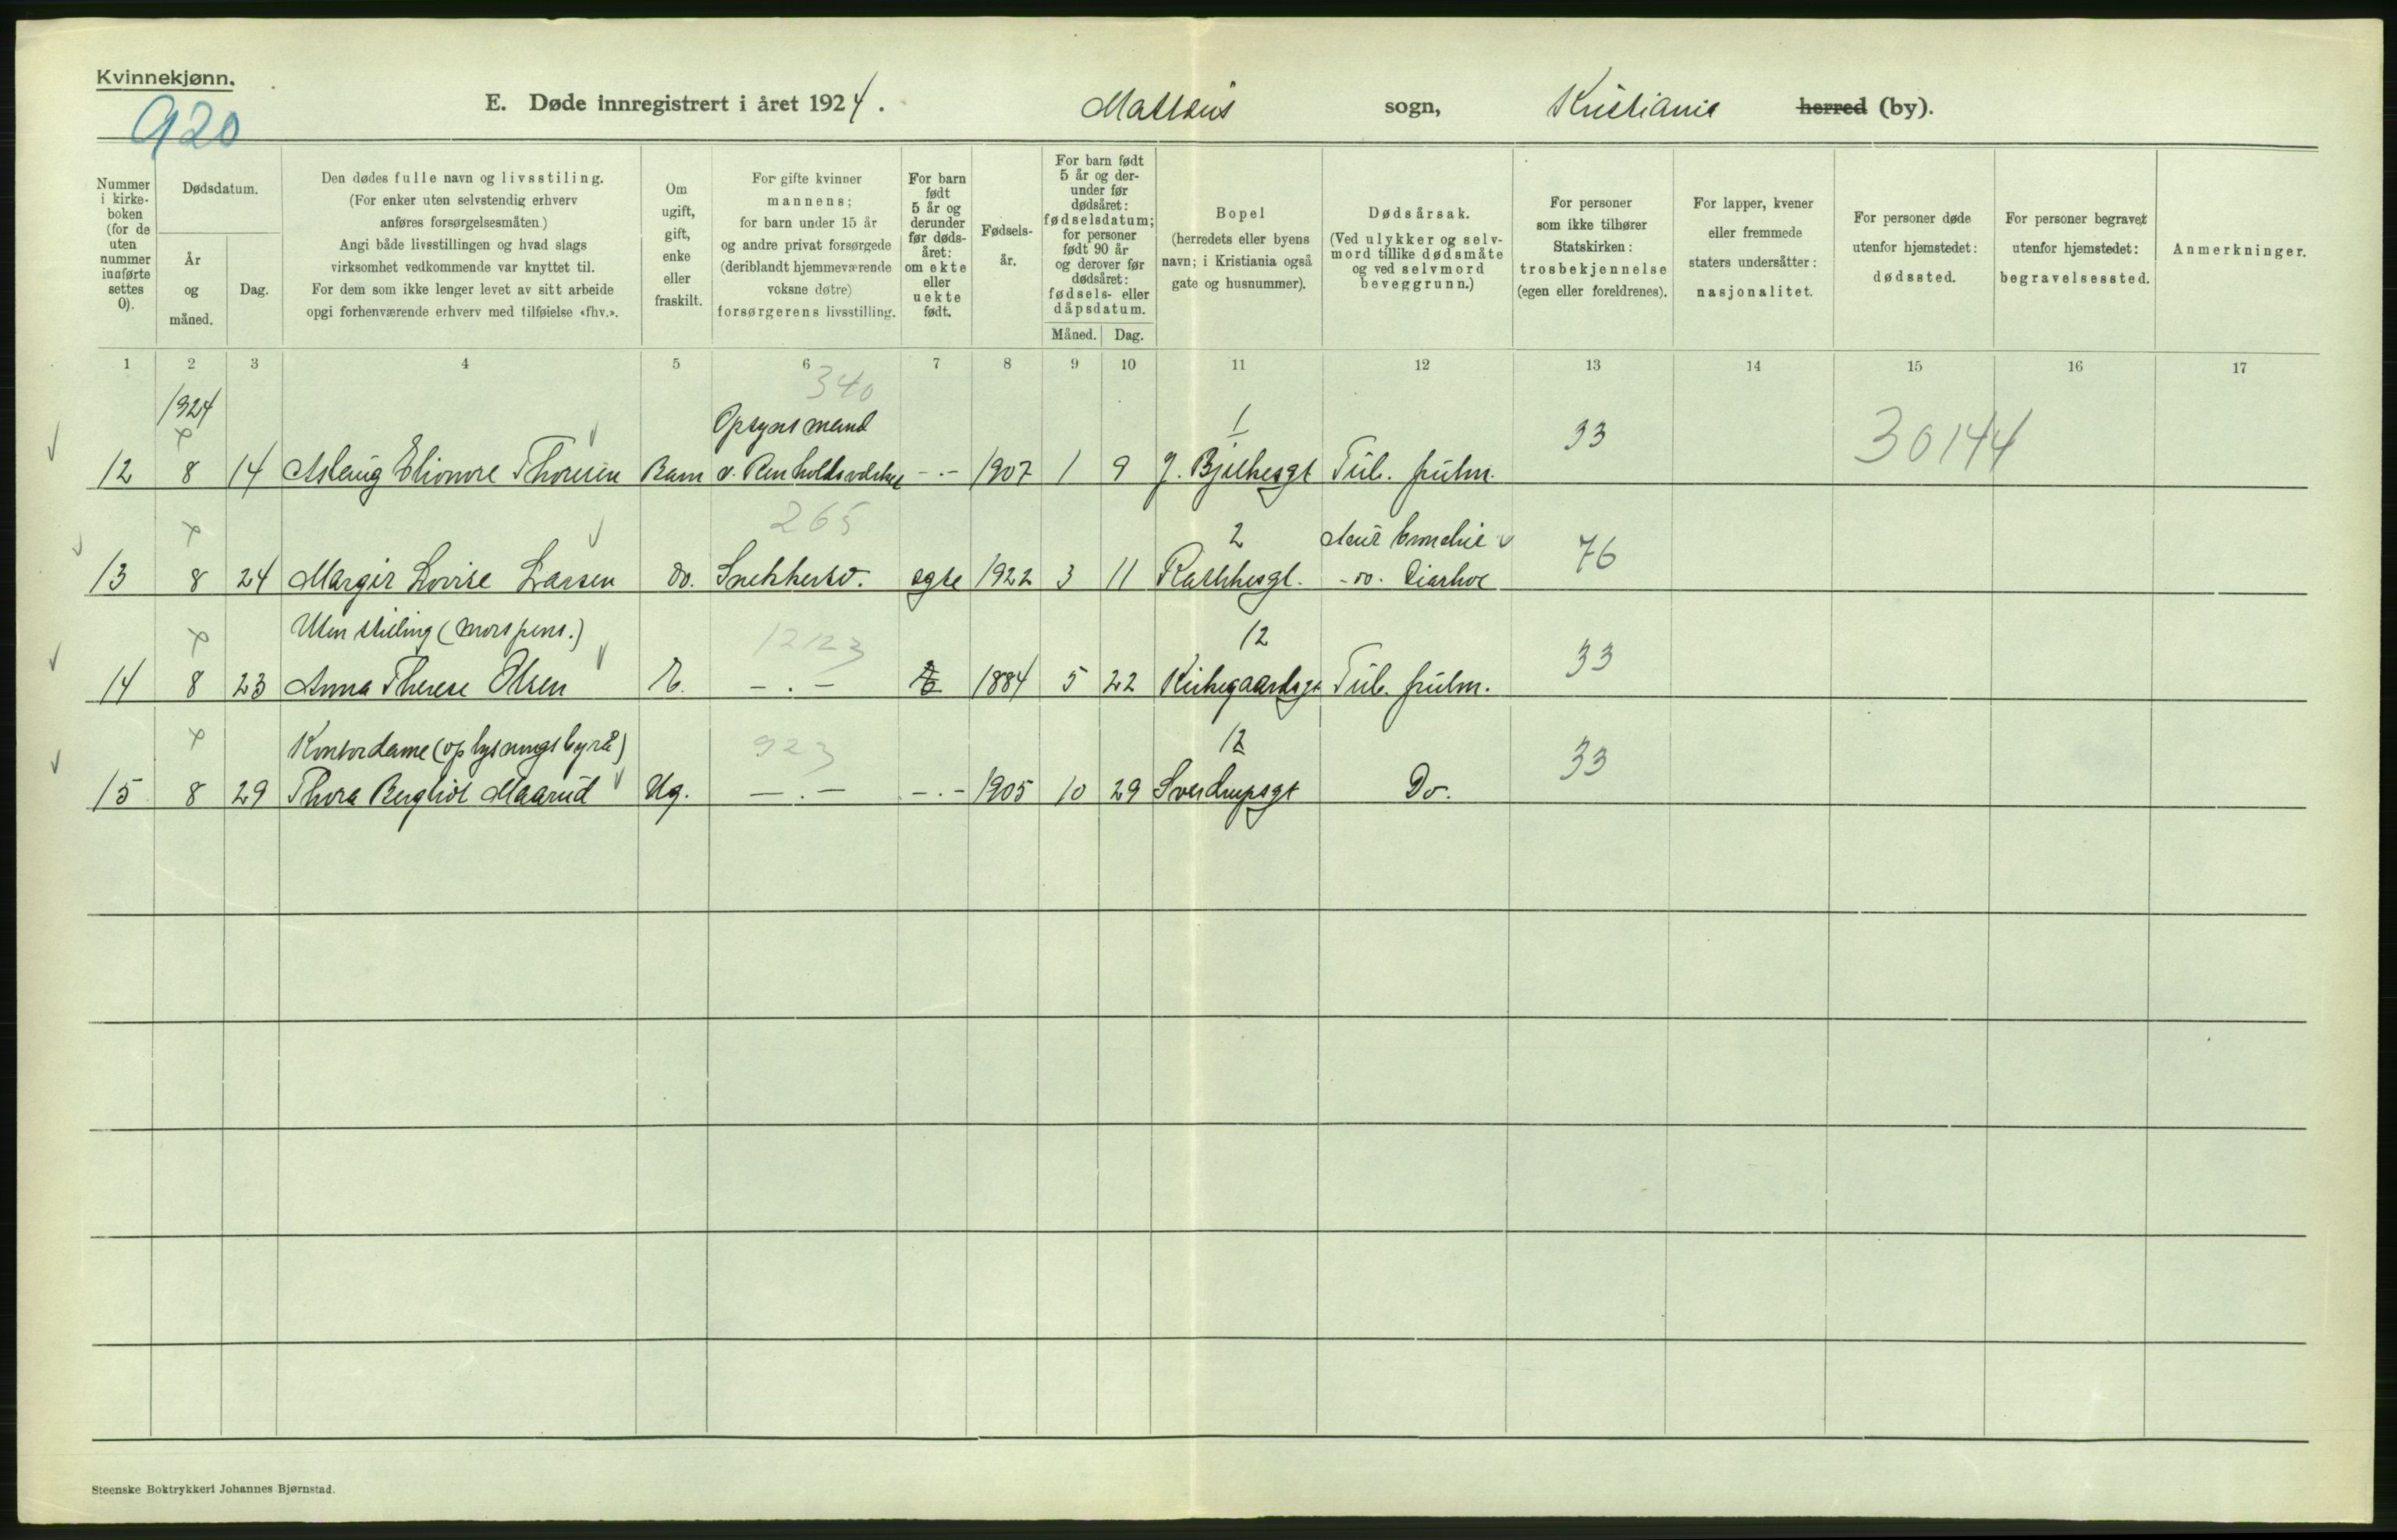 Kvinnekjønn.
920
E. Døde innregistrert i året 1924. Matteus sogn, Kristiania herred (by).
Nummer i kirke-boken (for de uten nummer innførte settes 0).
Dødsdatum.
År og måned.
Dag.
Den dødes fulle navn og livsstiling.
(For enker uten selvstendig erhverv
anføres forsørgelsesmåten.)
Angi både livsstillingen og hvad slags
virksomhet vedkommende var knyttet til.
For dem som ikke lenger levet av sitt arbeide
opgi forhenværende erhverv med tilføielse «fhv.».
Om
ugift,
gift,
enke
eller
fraskilt.
For gifte kvinner
mannens;
for barn under 15 år
og andre privat forsørgede
(deriblandt hjemmeværende
voksne døtre)
forsørgerens livsstilling.
For barn
født
5 år og
derunder
før døds-
året:
om ekte
eller
uekte
født.
Fødsels-
år.
For barn født
5 år og der-
under før
dødsåret:
fødselsdatum;
for personer
født 90 år
og derover før
dødsåret:
fødsels- eller
dåpsdatum.
Måned. Dag.
Bopel
(herredets eller byens
navn; i Kristiania også
gate og husnummer).
Dødsårsak.
(Ved ulykker og selv-
mord tillike dødsmåte
og ved selvmord
beveggrunn.)
For personer
som ikke tilhører
Statskirken:
trosbekjennelse
(egen eller foreldrenes).
For lapper, kvener
eller fremmede
staters undersåtter:
nasjonalitet.
For personer døde
utenfor hjemstedet:
dødssted.
For personer begravet
utenfor hjemstedet:
begravelsessted.
Anmerkninger.
1 2 3 4 5 6 7 8 9 10 11 12 13 14 15 16 17
1924 340
Opsynsmand 1 33 30144
12 8 14 Aslaug Elionore Thoresen Barn v. Renholdsverket -.- 1907 1 9 J. Bjelkesgt Tub. pulm.
265 2 76
13 8 24 Margit Lovise Larsen do. Snekkersv. egte 1922 3 11 Rathkesgt.
Uten stilling (morspens.) 12123 12 33
14 8 23 Anna Therese Olsen E. -.- 1884 5 22 Kirkegaardsgt Tub. pulm.
Kontordame (oplysningsbyrå) 923 12 33
15 8 29 Thora Bergliot Maarud Ug. -.- -.- 1905 10 29 Sverdrupsgt Do.
Steenske Boktrykkeri Johannes Bjørnstad.